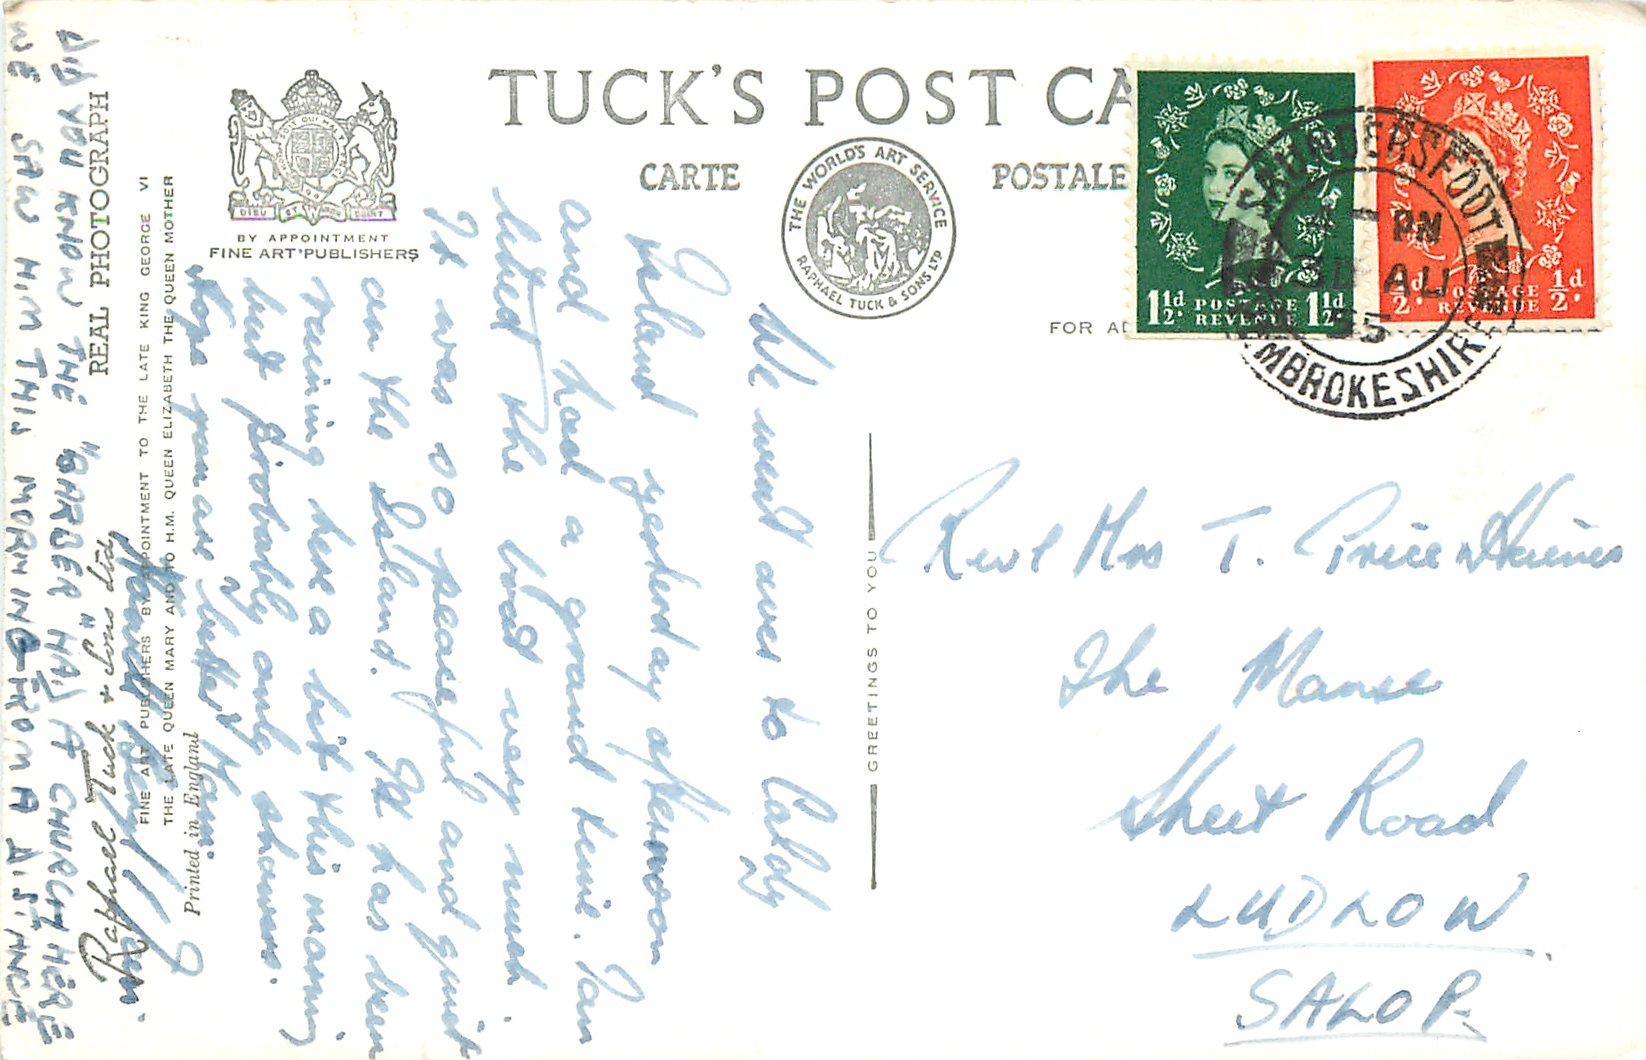 TUCK'S POST CA
CARTE
POSTALE
THE WORLD'S ART SERVICE
RAPHAEL TUCK & SONS LTD
DIEU ET MON DROIT
BY APPOINTMENT
FINE ART PUBLISHERS
FOR AD
1½d. POSTAGE REVENUE 1½d.
½d. POSTAGE REVENUE ½d.
SAUNDERSFOOT
PM
31 AU
55
PEMBROKESHIRE
We went over to Caldy
Island yesterday afternoon
and had a grand time. Pam
liked the boat very much.
It was so peaceful and quiet
on the Island. It has been
raining here a bit this morning
but probably only showers.
Hope you are better, Mam.
DID YOU KNOW THE "BARBER" HAD A CHURCH HERE
WE SAW HIM THIS MORNING FROM A DISTANCE
REAL PHOTOGRAPH
Raphael Tuck & Sons Ltd
FINE ART PUBLISHERS BY APPOINTMENT TO THE LATE KING GEORGE VI
THE LATE QUEEN MARY AND TO H.M. QUEEN ELIZABETH THE QUEEN MOTHER
Printed in England
GREETINGS TO YOU
Rev & Mrs T. Price Haines
The Manse
Sheet Road
LUDLOW.
SALOP.